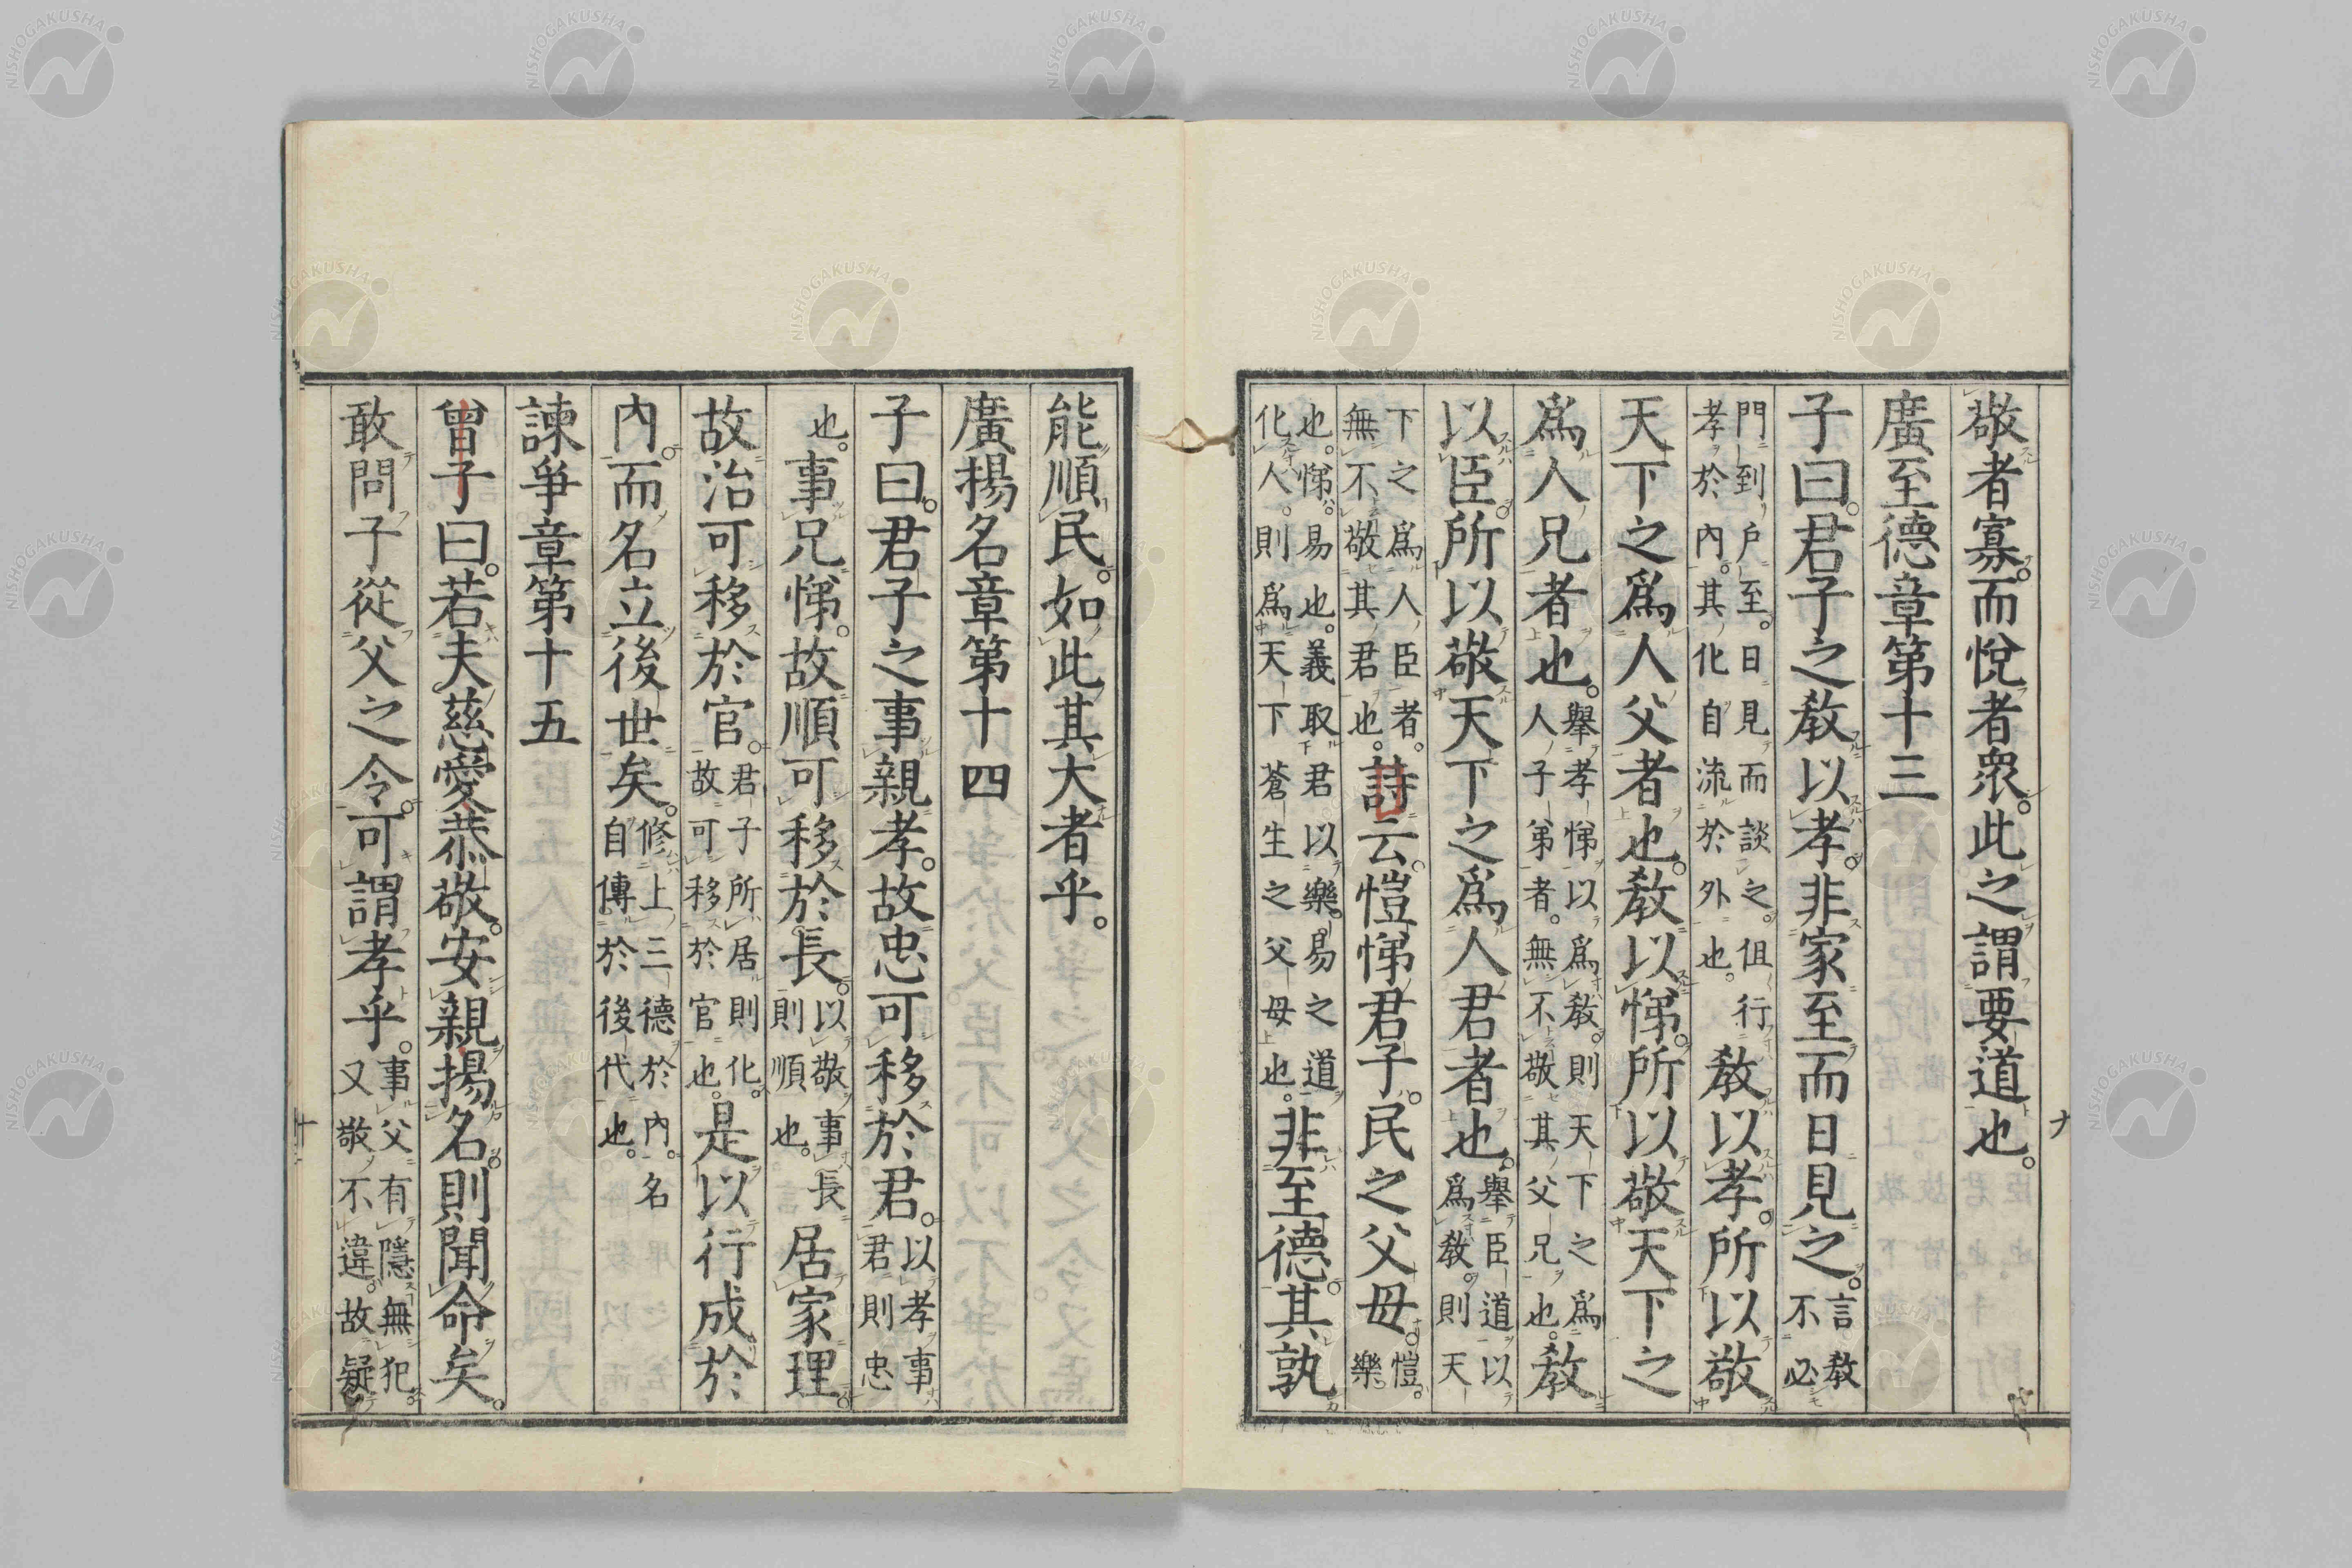 敬者寡。而悅者衆。此之謂要道也。
廣至德章第十三
子曰。君子之教以孝。非家至而日見之。言教不必
門到戶至。日見而談之。但行孝於內。其化自流於外也。教以孝。所以敬
天下之爲人父者也。教以悌。所以敬天下之
爲人兄者也。舉孝悌以爲教。則天下之爲人子弟者。無不敬其父兄也。教
以臣。所以敬天下之爲人君者也。舉臣道以爲教。則天
下之爲人臣者。無不敬其君也。詩云。愷悌君子。民之父母。愷。樂
也。悌。易也。義取君以樂易之道化人。則爲天下蒼生之父母也。非至德。其孰
能順民。如此其大者乎。
廣揚名章第十四
子曰。君子之事親孝。故忠可移於君。以孝事君則忠
也。事兄悌。故順可移於長。以敬事長則順也。居家理。
故治可移於官。君子所居則化。故可移於官也。是以行成於
內。而名立後世矣。修上三德於內。名自傳於後代也。
諫爭章第十五
曾子曰。若夫慈愛恭敬。安親揚名。則聞命矣。
敢問子從父之令。可謂孝乎。事父有隱無犯。又敬不違。故疑